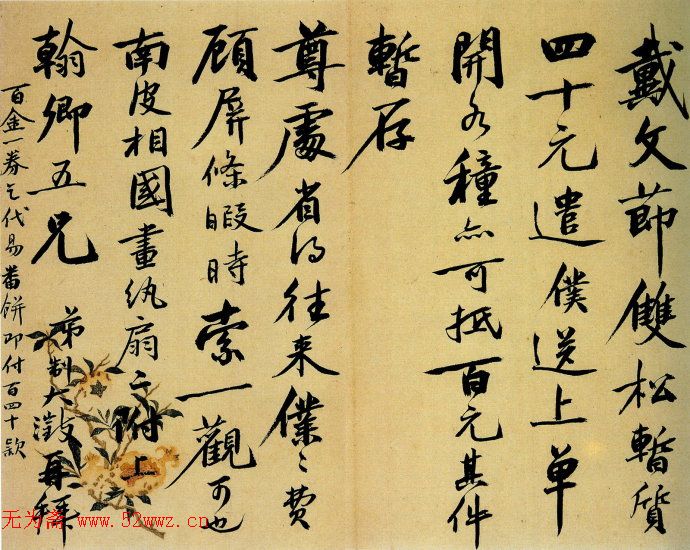 戴文節雙松暫質
四十元遣僕送上單
開各種亦可抵百元其件
暫存
尊處省得往來僕僕費
顧屏條暇時索一觀可也
南皮相國畫紈扇亦附上
翰卿五兄 弟制大澂再拜
百金一券乞代易番餅即付百四十款
无为斋 www.52wwz.cn